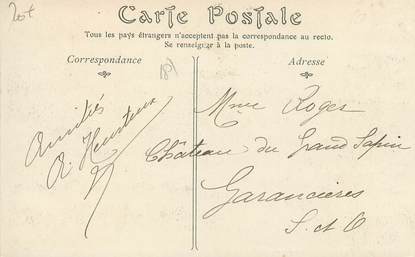 Carte Postale
Tous les pays étrangers n'acceptent pas la correspondance au recto.
Se renseigner à la poste.
Correspondance
Adresse
Amitiés
Mme Roger
Château du Grand Sapin
Garancières
S. et O